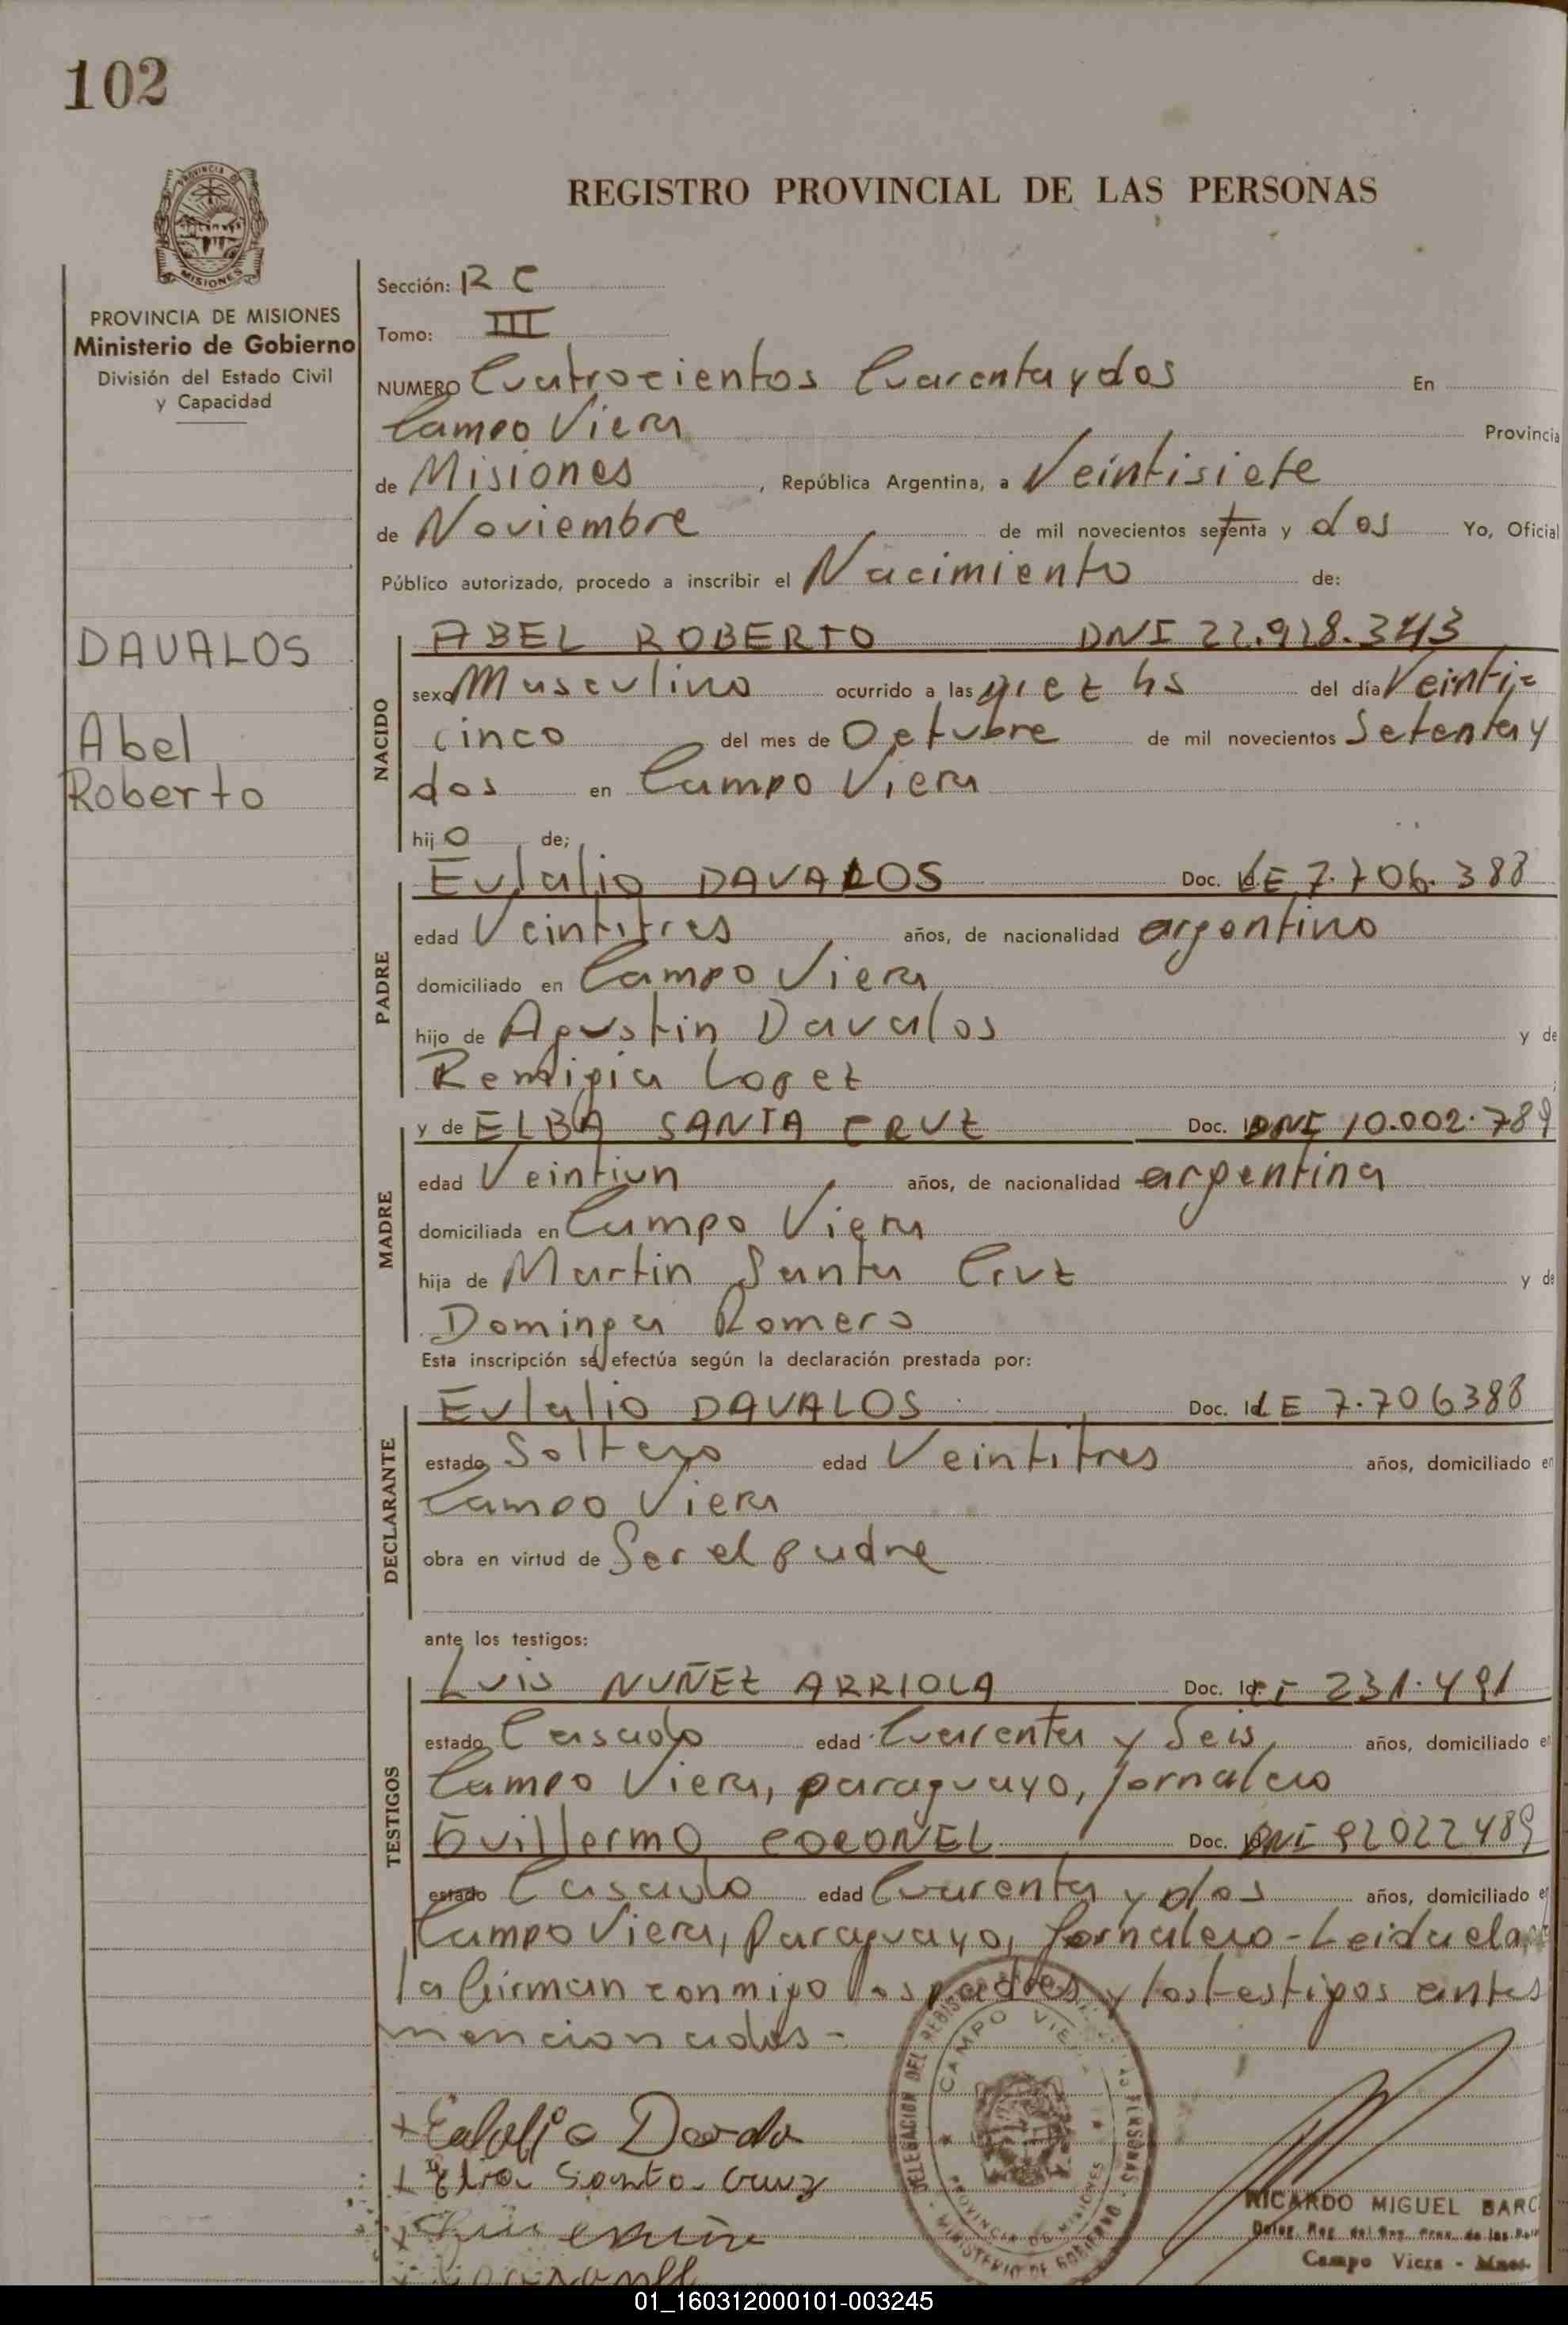 102
PROVINCIA DE
MISIONES
REGISTRO PROVINCIAL DE LAS PERSONAS
PROVINCIA DE MISIONES
Ministerio de Gobierno
División del Estado Civil
y Capacidad
DAVALOS
Abel
Roberto
Sección: R C
Tomo: III
NUMERO Cuatrocientos Cuarenta y dos En
Campo Viera Provincia
de Misiones, República Argentina, a Veintisiete
de Noviembre de mil novecientos setenta y dos Yo, Oficial
Público autorizado, procedo a inscribir el Nacimiento de:
NACIDO
ABEL ROBERTO DNI 22.928.343
sexo Masculino ocurrido a las diez hs del día Veinti=
cinco del mes de Octubre de mil novecientos Setenta y
dos en Campo Viera
hijo de;
PADRE
Eulalio DAVALOS Doc. LE 7.706.388
edad Veintitres años, de nacionalidad argentino
domiciliado en Campo Viera
hijo de Agustin Davalos y de
Remigia Lopez
MADRE
y de ELBA SANTA CRUZ Doc. DNI 10.002.789
edad Veintiun años, de nacionalidad argentina
domiciliada en Campo Viera
hija de Martin Santa Cruz y de
Dominga Romero
Esta inscripción se efectúa según la declaración prestada por:
DECLARANTE
Eulalio DAVALOS Doc. Id LE 7.706388
estado Soltero edad Veintitres años, domiciliado en
Campo Viera
obra en virtud de Ser el padre
ante los testigos:
TESTIGOS
Luis NUÑEZ ARRIOLA Doc. Id. 231.491
estado Casado edad Cuarenta y Seis años, domiciliado en
Campo Viera, paraguayo, jornalero
Guillermo CORONEL Doc. DNI 92022489
estado Casado edad Cuarenta y dos años, domiciliado en
Campo Viera, Paraguayo, Jornalero - Leida el
la firman conmigo los padres y los testigos antes
mencionados -
DELEGACION DEL REGISTRO PERSONAS
CAMPO VIERA
PROVINCIA DE MISIONES
MINISTERIO DE GOBIERNO
+ Elva Santa Cruz
RICARDO MIGUEL BARC
Campo Viera - Mnes
01_160312000101-003245